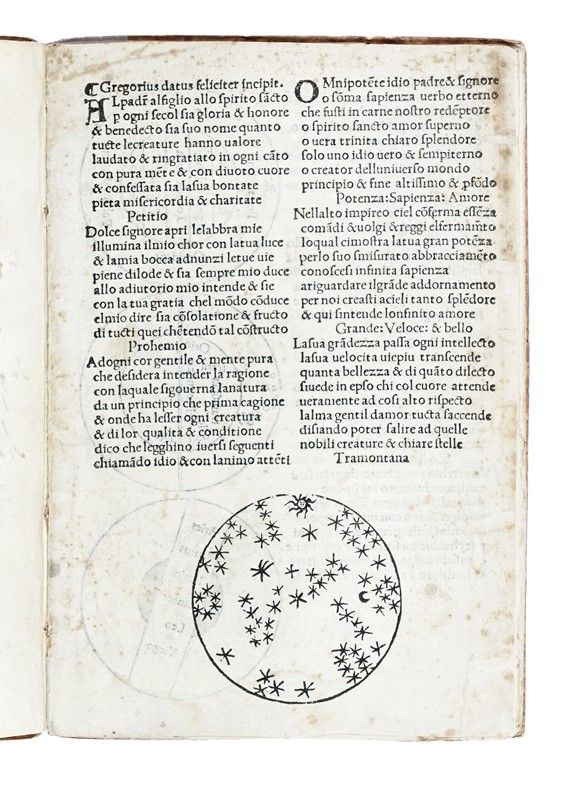 ¶ Gregorius datus feliciter incipit.
ALpadr̃ alfiglio allo spirito sãcto
p ogni secol sia gloria & honore
& benedecto sia suo nome quanto
tucte lecreature hanno ualore
laudato & ringratiato in ogni cãto
con pura mẽte & con diuoto cuore
& confessata sia lasua bontate
pieta misericordia & charitate
Petitio
Dolce signore apri lelabbra mie
illumina ilmio chor con latua luce
& lamia bocca adnunzi letue uie
piene dilode & sia sempre mio duce
allo adiutorio mio intende & sie
con la tua gratia chel mõdo cõduce
elmio dire sia cõsolatione & fructo
di tucti quei chẽtendõ tal cõstructo
Prohemio
Adogni cor gentile & mente pura
che desidera intender la ragione
con laquale sigouerna lanatura
da un principio che prima cagione
& onde ha lesser ogni creatura
& di lor qualita & conditione
dico che legghino iuersi seguenti
chiamãdo idio & con lanimo attẽti
OMnipotẽte idio padre & signore
o sõma sapienza uerbo etterno
che fusti in carne nostro redẽptore
o spirito sancto amor superno
o uera trinita chiaro splendore
solo uno idio uero & sempiterno
o creator delluniuerso mondo
principio & fine altissimo & ꝓfõdo
Potenza: Sapienza: Amore
Nellalto impireo ciel cõferma essẽza
comãdi & uolgi & reggi elfermamẽto
loqual cimostra latua gran potẽza
perlo suo smisurato abbracciamẽto
conoscesi infinita sapienza
ariguardare ilgrãde addornamento
per noi creasti acieli tanto splẽdore
& qui sintende lonfinito amore
Grande: Veloce: & bello
Lasua grãdezza passa ogni intellecto
lasua uelocita uiepiu transcende
quanta bellezza & di quãto dilecto
siuede in epso chi col cuore attende
ueramente ad cosi alto rispecto
lalma gentil damor tucta saccende
disiando poter salire ad quelle
nobili creature & chiare stelle
Tramontana